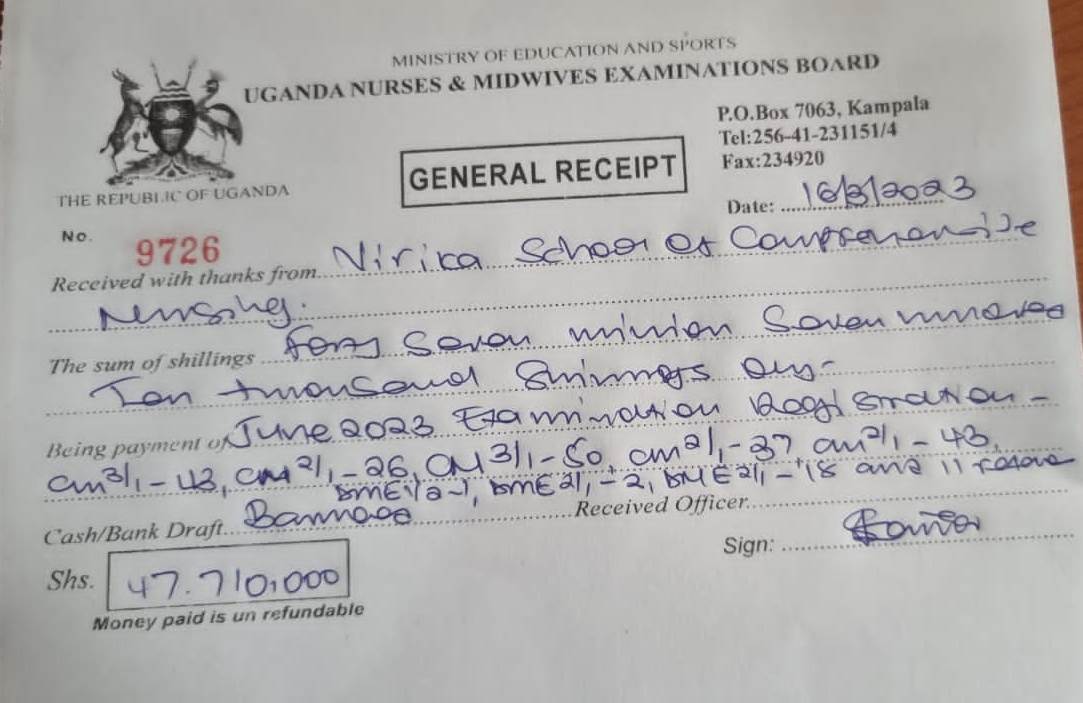 MINISTRY OF EDUCATION AND SPORTS
UGANDA NURSES & MIDWIVES EXAMINATIONS BOARD
P.O.Box 7063, Kampala
Tel:256-41-231151/4
Fax:234920
GENERAL RECEIPT
THE REPUBLIC OF UGANDA
Date: 16/3/2023
No. 9726
Received with thanks from Nirica School of Comprehensive
Nursing.
The sum of shillings Forty Seven million Seven hundred
Ten thousand Shillings Only-
Being payment of June 2023 Examination Registration -
cm3/1-43, cm2/1-26, CM3/1-50, cm2/1-37 cm2/1-43,
DME2/1-2, DME2/1-18 and 11
Cash/Bank Draft
Received Officer
Sign:
Shs. 47.710,000
Money paid is un refundable